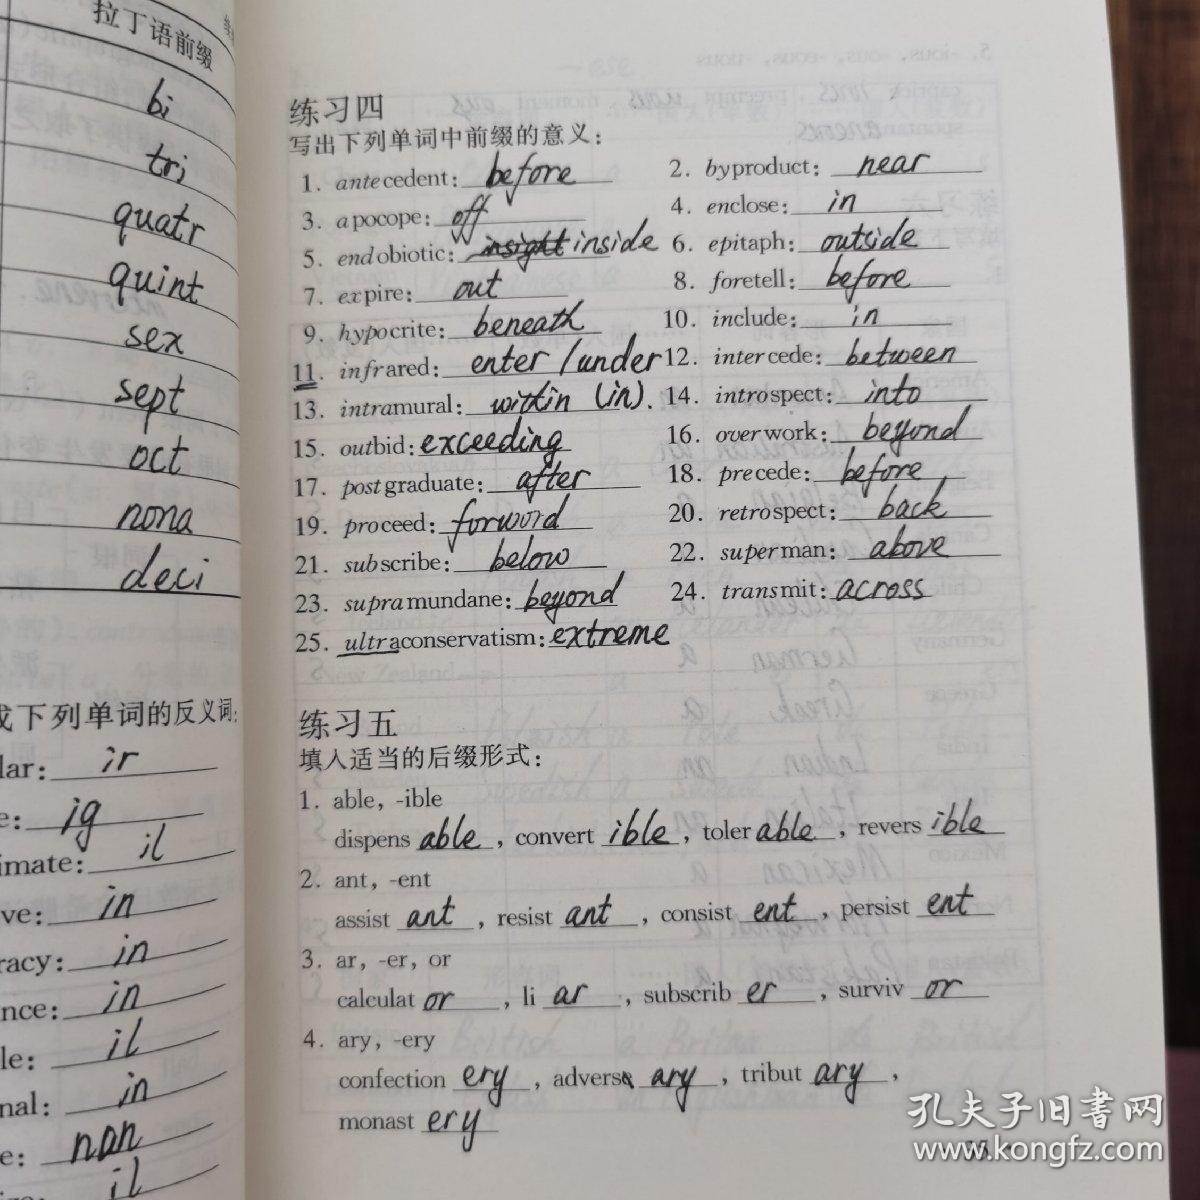 拉丁语前缀
bi
tri
quatr
quint
sex
sept
oct
nona
deci
下列单词的反义词:
lar: ir
e: ig
imate: il
ve: in
racy: in
nce: in
le: il
nal: in
e: non
il
练习四
写出下列单词中前缀的意义:
1. antecedent: before 2. byproduct: near
3. apocope: off 4. enclose: in
5. endobiotic: insight inside 6. epitaph: outside
7. expire: out 8. foretell: before
9. hypocrite: beneath 10. include: in
11. infrared: enter / under 12. intercede: between
13. intramural: within (in). 14. introspect: into
15. outbid: exceeding 16. overwork: beyond
17. postgraduate: after 18. precede: before
19. proceed: forword 20. retrospect: back
21. subscribe: below 22. superman: above
23. supramundane: beyond 24. transmit: across
25. ultraconservatism: extreme
练习五
填入适当的后缀形式:
1. able, -ible
dispens able, convert ible, toler able, revers ible
2. ant, -ent
assist ant, resist ant, consist ent, persist ent
3. ar, -er, or
calculat or, li ar, subscrib er, surviv or
4. ary, -ery
confection ery, advers ary, tribut ary,
monast ery
孔夫子旧书网
www.kongfz.com